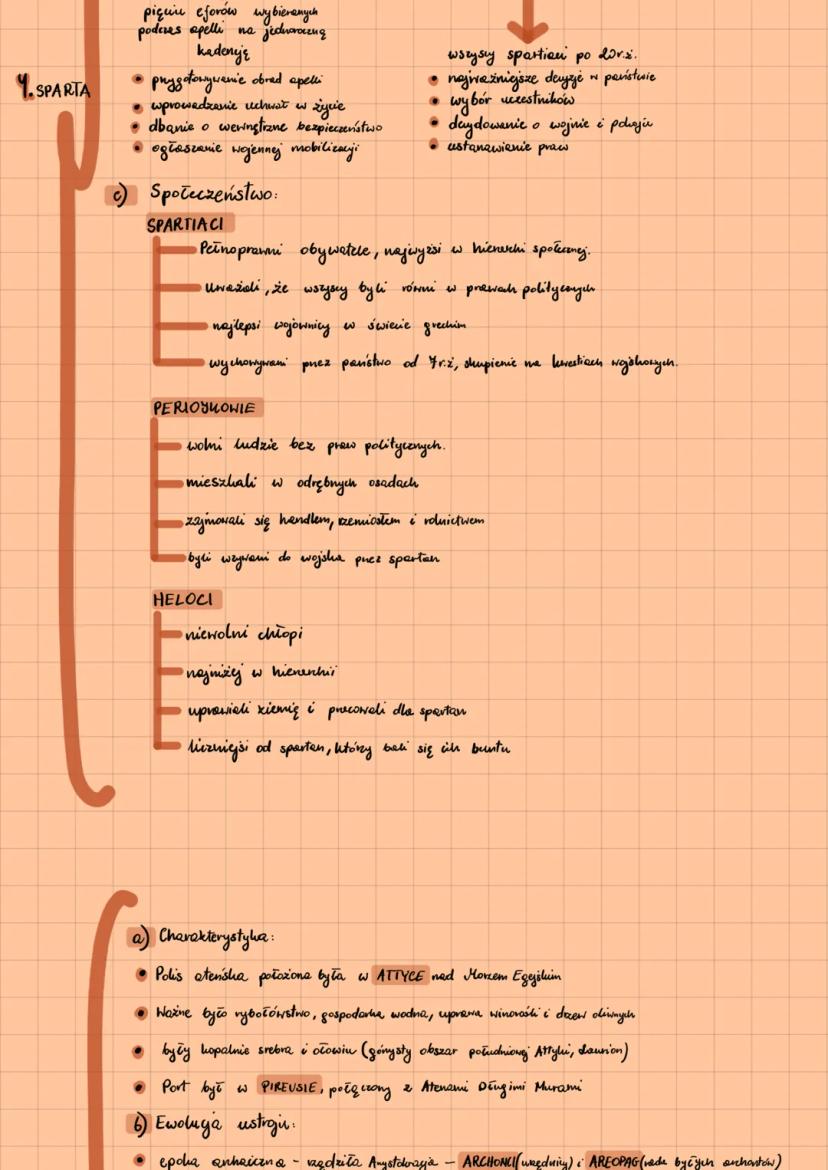 pięciu eforów wybieranych
podczas apelli na jednoroczną
kadencję
• przygotowywanie obrad apelli
• wprowadzanie uchwał w życie
• dbanie o wewnętrzne bezpieczeństwo
• ogłaszanie wojennej mobilizacji
wszyscy spartiaci po 20 r.ż.
• najważniejsze decyzje w państwie
• wybór urzestników
• decydowanie o wojnie i pokoju
• ustanawianie praw
4. SPARTA
c) Społeczeństwo:
SPARTIACI
Pełnoprawni obywatele, najwyżsi w hierarchii społecznej.
Uważali, że wszyscy byli równi w prawach politycznych
najlepsi wojownicy w świecie greckim
wychowywani przez państwo od 7 r.ż, skupienie na kwestiach wojskowych.
PERIOJKOWIE
wolni ludzie bez praw politycznych.
mieszkali w odrębnych osadach
zajmowali się handlem, rzemiosłem i rolnictwem
byli wzywani do wojska przez spartan
HELOCI
niewolni chłopi
najniżej w hierarchii
uprawiali ziemię i pracowali dla spartan
liczniejsi od spartan, którzy bali się ich buntu
a) Charakterystyka:
• Polis ateńska położona była w ATTYCE nad Morzem Egejskim
• Ważne było rybołówstwo, gospodarka wodna, uprawa winorośli i drzew oliwnych
• były kopalnie srebra i ołowiu (górzysty obszar południowej Attyki, Laurion)
• Port był w PIREUSIE, połączony z Atenami Długimi Murami
b) Ewolucja ustroju:
• epoka archaiczna - rządziła Arystokracja - ARCHONCI (urzędnicy) i AREOPAG (rada byłych archontów)